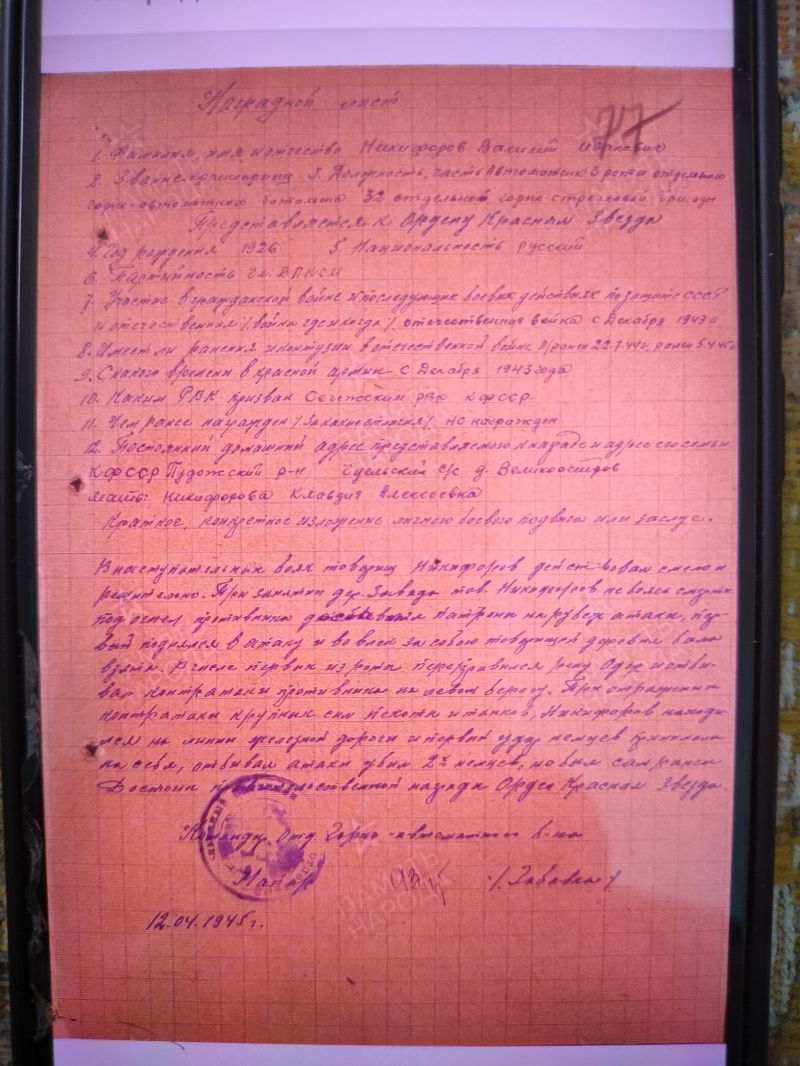 Наградной лист
77
1. Фамилия, имя и отчество Никифоров Василий Иванович
2. Звание красноармеец 3. Должность, часть Автоматчик 3 роты отдельного
горно-автоматного батальона 32 отдельной горно-стрелковой бригады
Представляется к Ордену Красная Звезда
4. Год рождения 1926 5. Национальность русский
6. Партийность чл. ВЛКСМ
7. Участие в гражданской войне и последующих боевых действиях по защите СССР
и отечественной /войне где и когда/. отечественная война с Декабря 1943 г
8. Имеет ли ранения и контузии в отечественной войне ранен 22.7.44 г, ранен 5.4.45 г
9. С какого времени в красной армии с Декабря 1943 года
10. Каким РВК призван РВК КФССР.
11. Чем ранее награжден /за какие отличия/. не награжден
12. Постоянный домашний адрес представляемого к награде и адрес его семьи
КФССР Пудожский р-н с/с д. Великоостров
мать: Никифорова Клавдия Алексеевна
Краткое, конкретное изложение личного боевого подвига или заслуг.
В наступательных боях товарищ Никифоров действовал смело и
решительно. При занятии дер. Завада тов. Никифоров не боясь смерти
под огнем противника доставил патроны на рубеж атаки, пер-
вый поднялся в атаку и вовлек за собою товарищей деревня была
взята. В числе первых из роты переправился реку Одер и отби-
вал контратаки противника на левом берегу. При отражении
контратаки крупных сил пехоты и танков, Никифоров находи-
лся на линии железной дороги и первый удар немцев принимал
на себя, отбивая атаки убил 27 немцев, но был сам ранен
Достоин правительственной награды Орден Красная Звезда.
Командир Отд. Горно-автоматного б-на
12.04.1945 г.
ПАМЯТЬ
НАРОДА